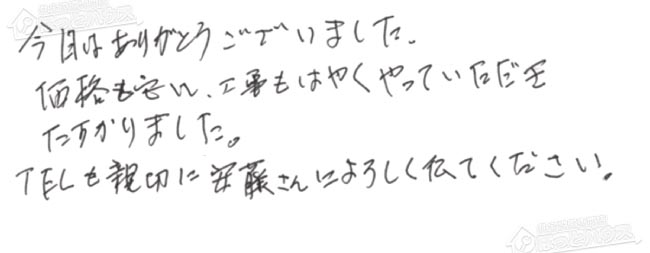 今日はありがとうございました。
価格も安い、工事もはやくやっていただき
たすかりました。
TELも親切に安藤さんによろしく伝てください。